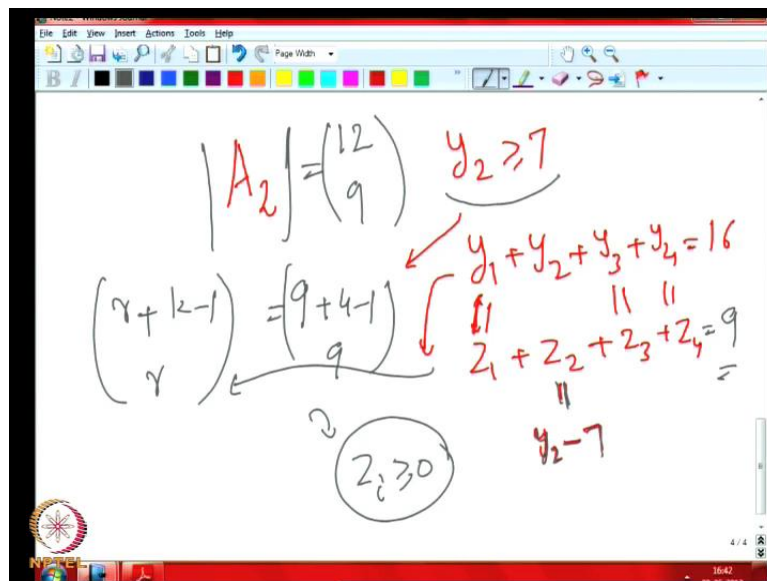 File Edit View Insert Actions Tools Help
Page Width
B I
|A₂| = (12 9) y₂ ≥ 7
y₁ + y₂ + y₃ + y₄ = 16
(r + k-1 r) = (9 + 4-1 9)
|| || ||
z₁ + z₂ + z₃ + z₄ = 9
=
||
y₂ - 7
zᵢ ≥ 0
4 / 4
NPTEL
16:42